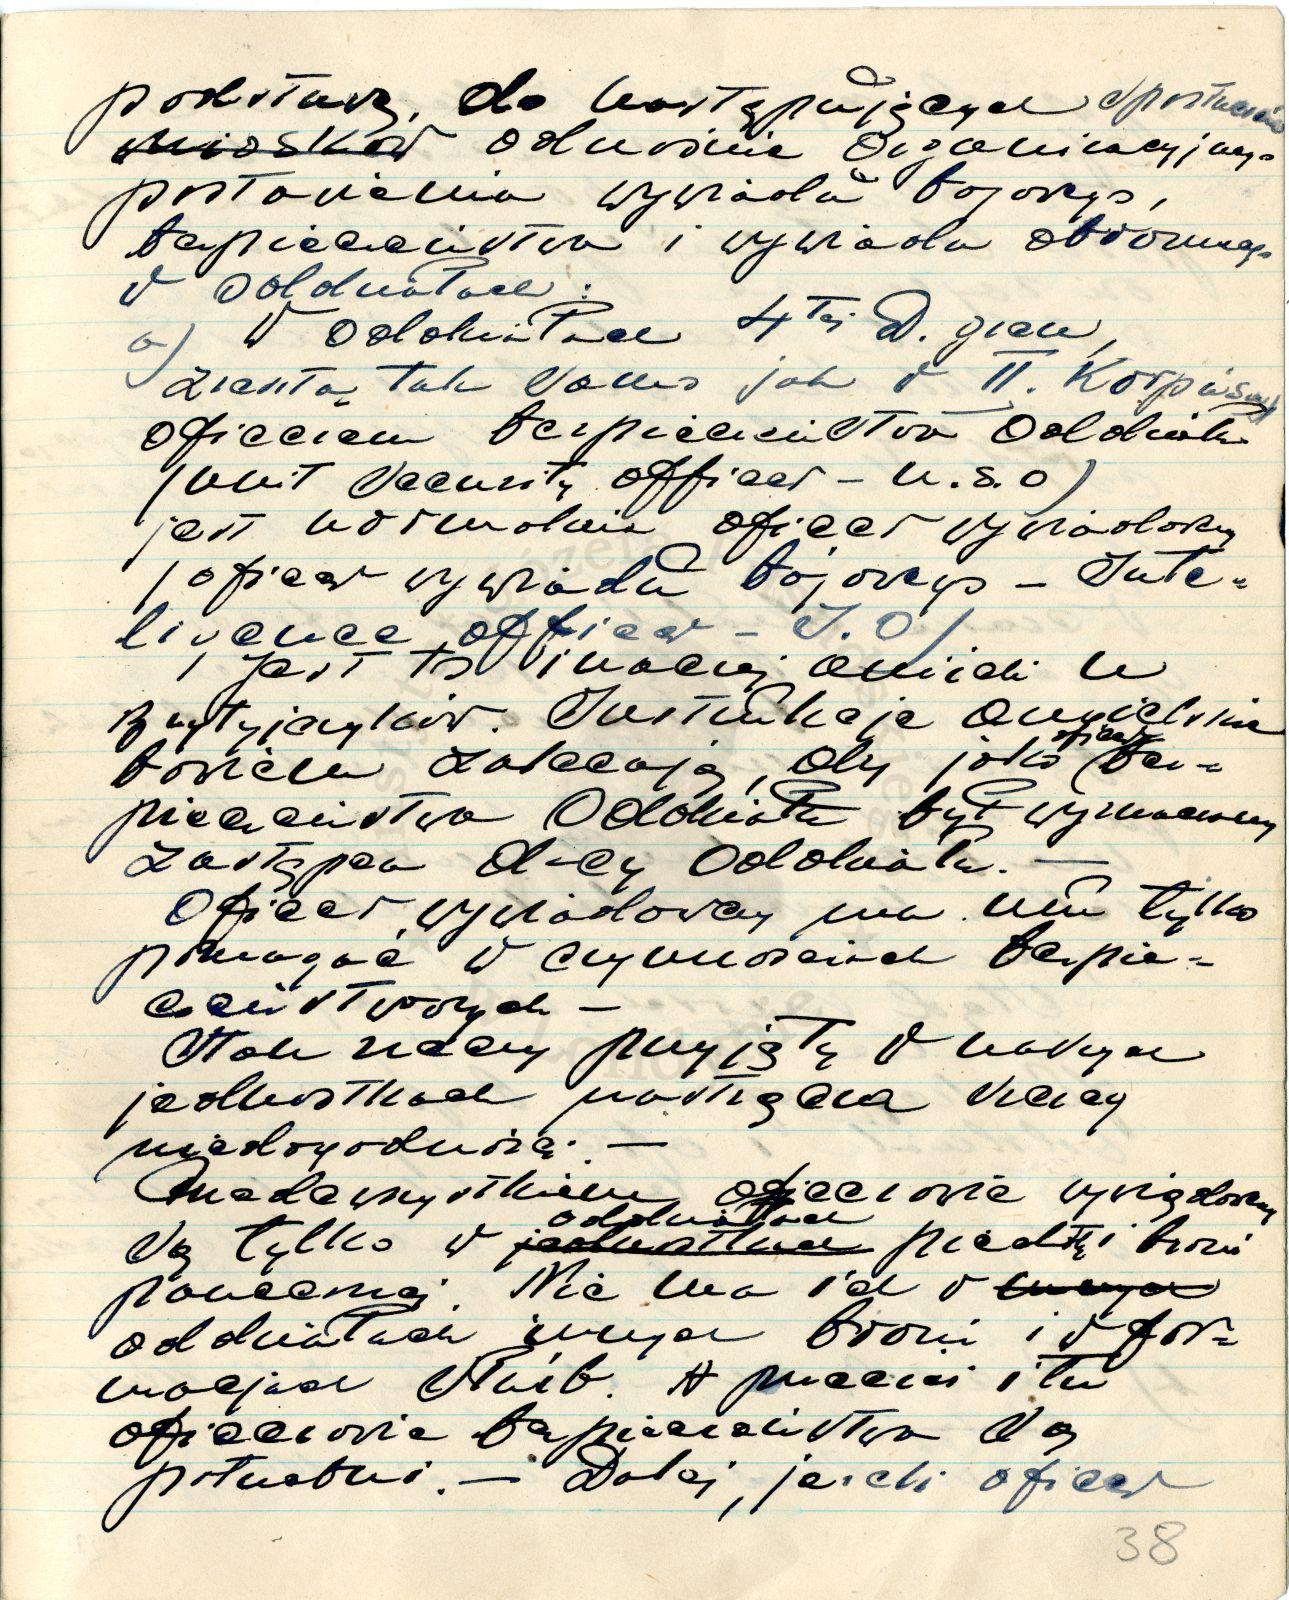 podstawą, do następujących spostrzeżeń
wniosków odnośnie organizacyjnego
postawienia wywiadu bojowego,
bezpieczeństwa i wywiadu obronnego
w oddziałach:
a) W oddziałach 4tej D. piech,
zresztą tak samo jak w II. Korpusie
oficerem bezpieczeństwa Oddziału
(unit security officer – u.s.o)
jest normalnie oficer wywiadowczy
(oficer wywiadu bojowego – Inte-
ligence officer – I.O)
Jest to inaczej aniżeli u
Brytyjczyków. Instrukcje angielskie
bowiem zalecają, aby jako oficer bez-
pieczeństwa Oddziału był wyznaczony
zastępca d-cy Oddziału. —
Oficer wywiadowczy ma mu tylko
pomagać w czynnościach bezpie-
czeństwowych –
Stan rzeczy przyjęty w naszych
jednostkach nastręcza szereg
niedogodności. —
Przedewszystkiem oficerowie wywiadowczy
są tylko w jednostkach oddziałach piechoty i broni
pancernej. Nie ma ich w innych
oddziałach innych broni i w for-
macjach służb. A przecież i tu
oficerowie bezpieczeństwa są
potrzebni. — Dalej, jeżeli oficer
38